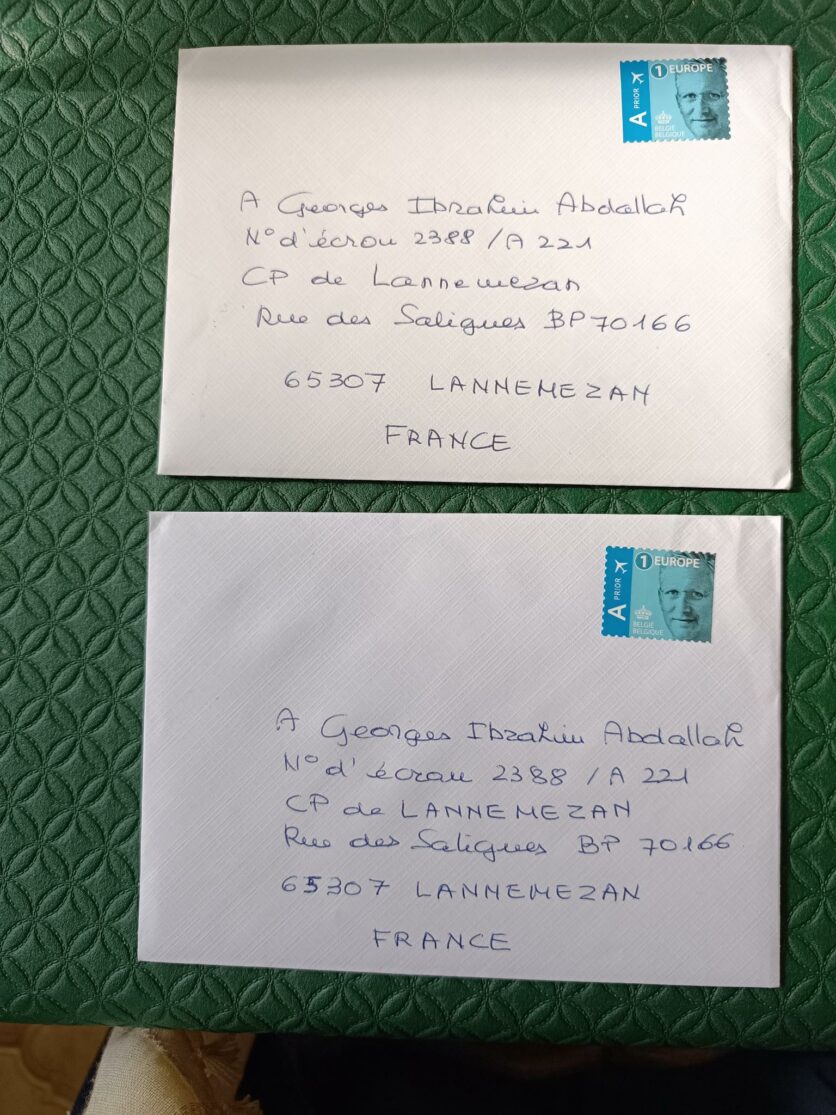 A PRIOR
1 EUROPE
BELGIË
BELGIQUE
A Georges Ibrahim Abdallah
N° d'écrou 2388 / A 221
CP de Lannemezan
Rue des Saligues BP 70166
65307 LANNEMEZAN
FRANCE
A PRIOR
1 EUROPE
BELGIË
BELGIQUE
A Georges Ibrahim Abdallah
N° d'écrou 2388 / A 221
CP de LANNEMEZAN
Rue des Saligues BP 70166
65307 LANNEMEZAN
FRANCE